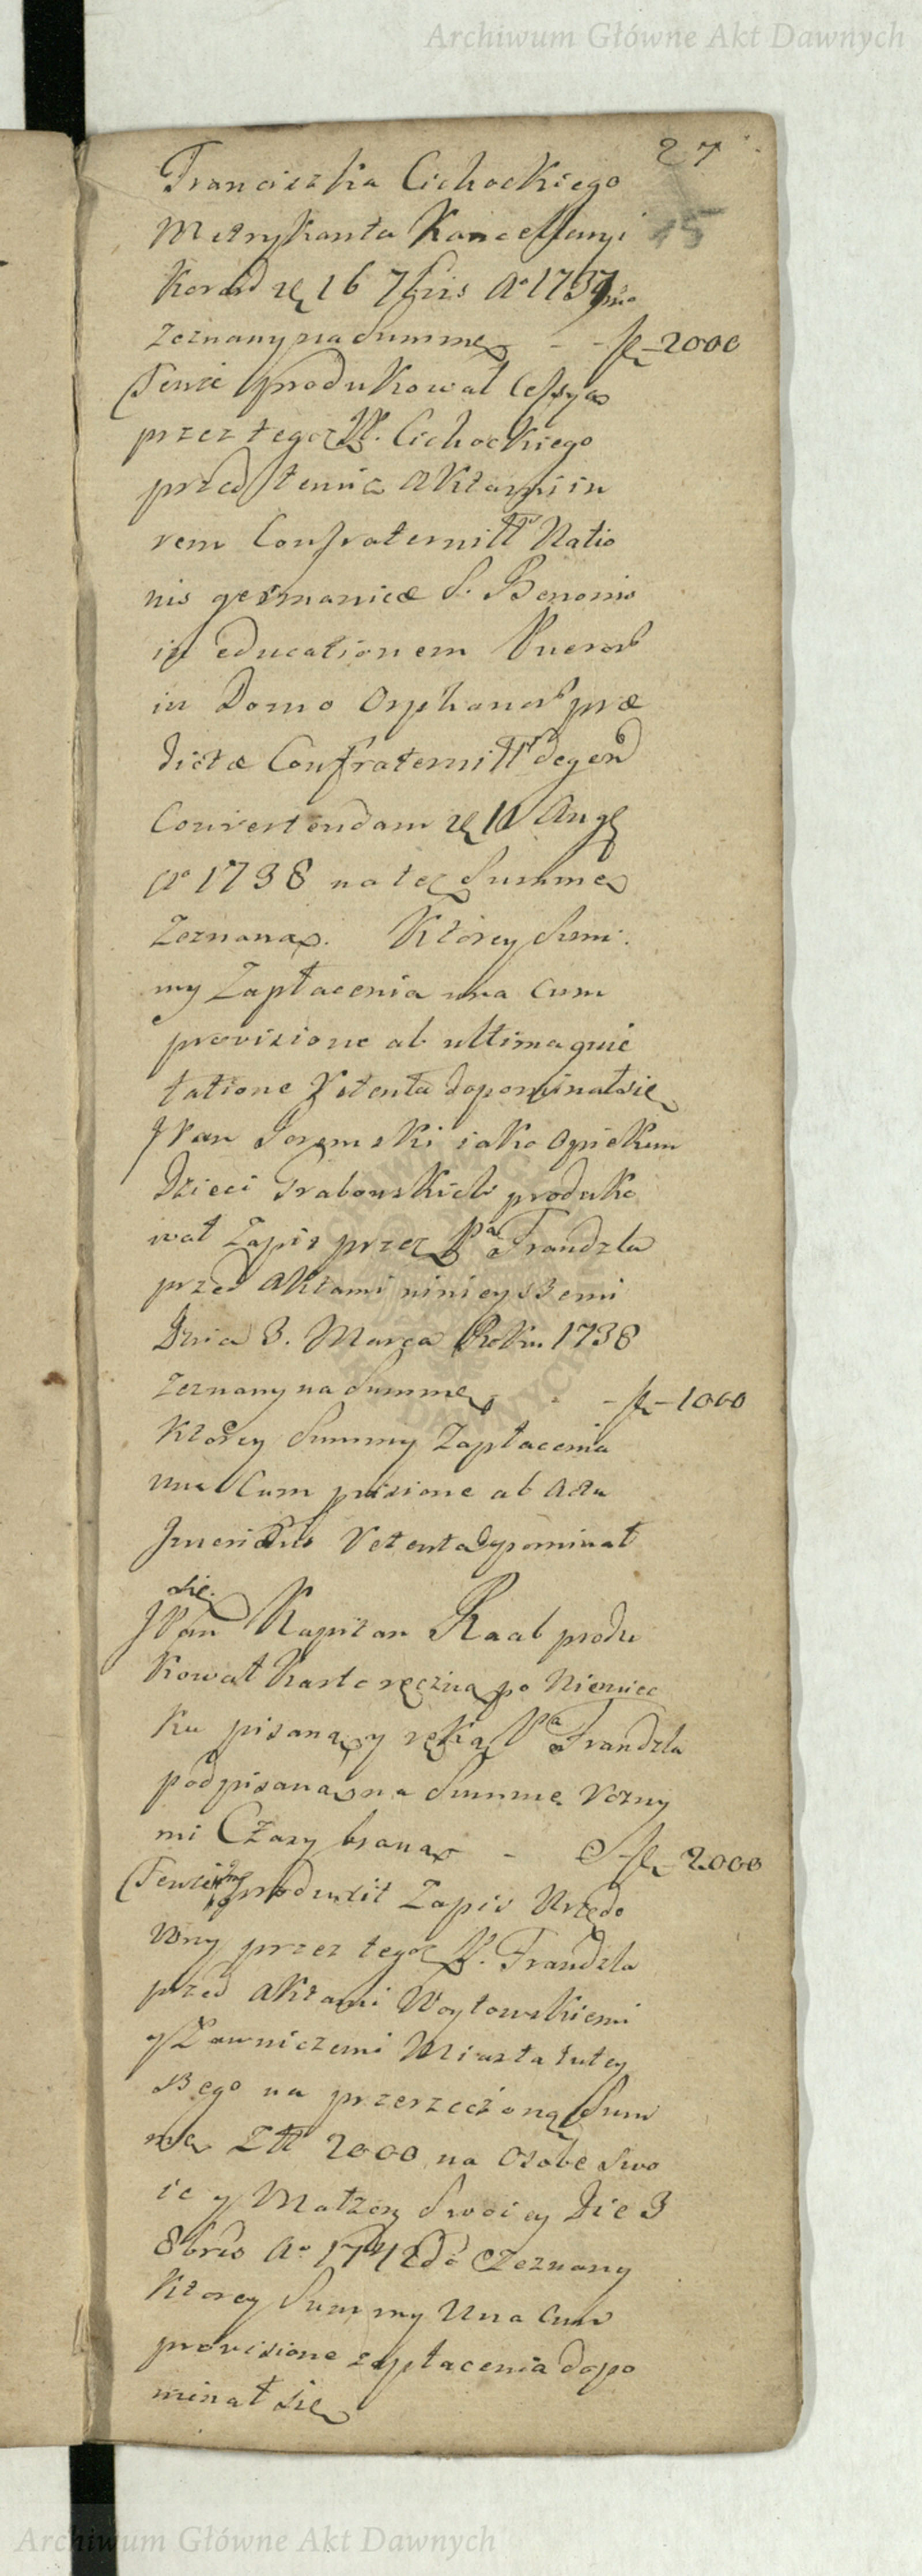 Archiwum Główne Akt Dawnych
27
15
Franciszka Cichockiego
Metrykanta Kancellaryi
Koron 16 7bris Aº 1737mo
zeznany na Summę - - fl 2000
Tenże produkował Cessyą
przez tegoż P. Cichockiego
przed temiż Aktami in
rem Confraternitt Natio
nis germanicæ S. Benonis
in educationem Pueror
in Domo Orphanor præ
dictæ Confraternitt degen
Convertendam 11 Aug
Aº 1738 na tęż Summę
Zeznaną. Którey Sum
my Zapłacenia una cum
provisione ab ultima quie
tatione retenta dopominał się
JPan Soremski iako Opiekun
Dzieci Grabowskich produko
wał Zapis przez Pa Frandzla
przed Aktami ninieyszemi
Dnia 3. Marca Roku 1738
zeznany na Summę - - fl 1000
Ktorey Summy Zapłacenia
una Cum provisione ab actu
Retenta dopominał
się.
JPan Kapitan Raab produ
kował Kartę ręczną po Niemiec
ku pisaną y ręką Pa Frandzla
podpisaną na Summę rożny
mi Czasy braną - fl 2000
Tenże produxit Zapis Urzędo
wny przez tegoż P. Frandzla
przed Aktami Woytowskiemi
y Ławniczemi Miasta tutey
szego na przerzeczoną Sum
mę Ztt 2000 na Osobę Swo
ię y Małżon Swoiey Die 3
8bris Aº 1742do Zeznany
Ktorey Summy Una Cum
provisione zapłacenia dopo
minał się
Archiwum Główne Akt Dawnych